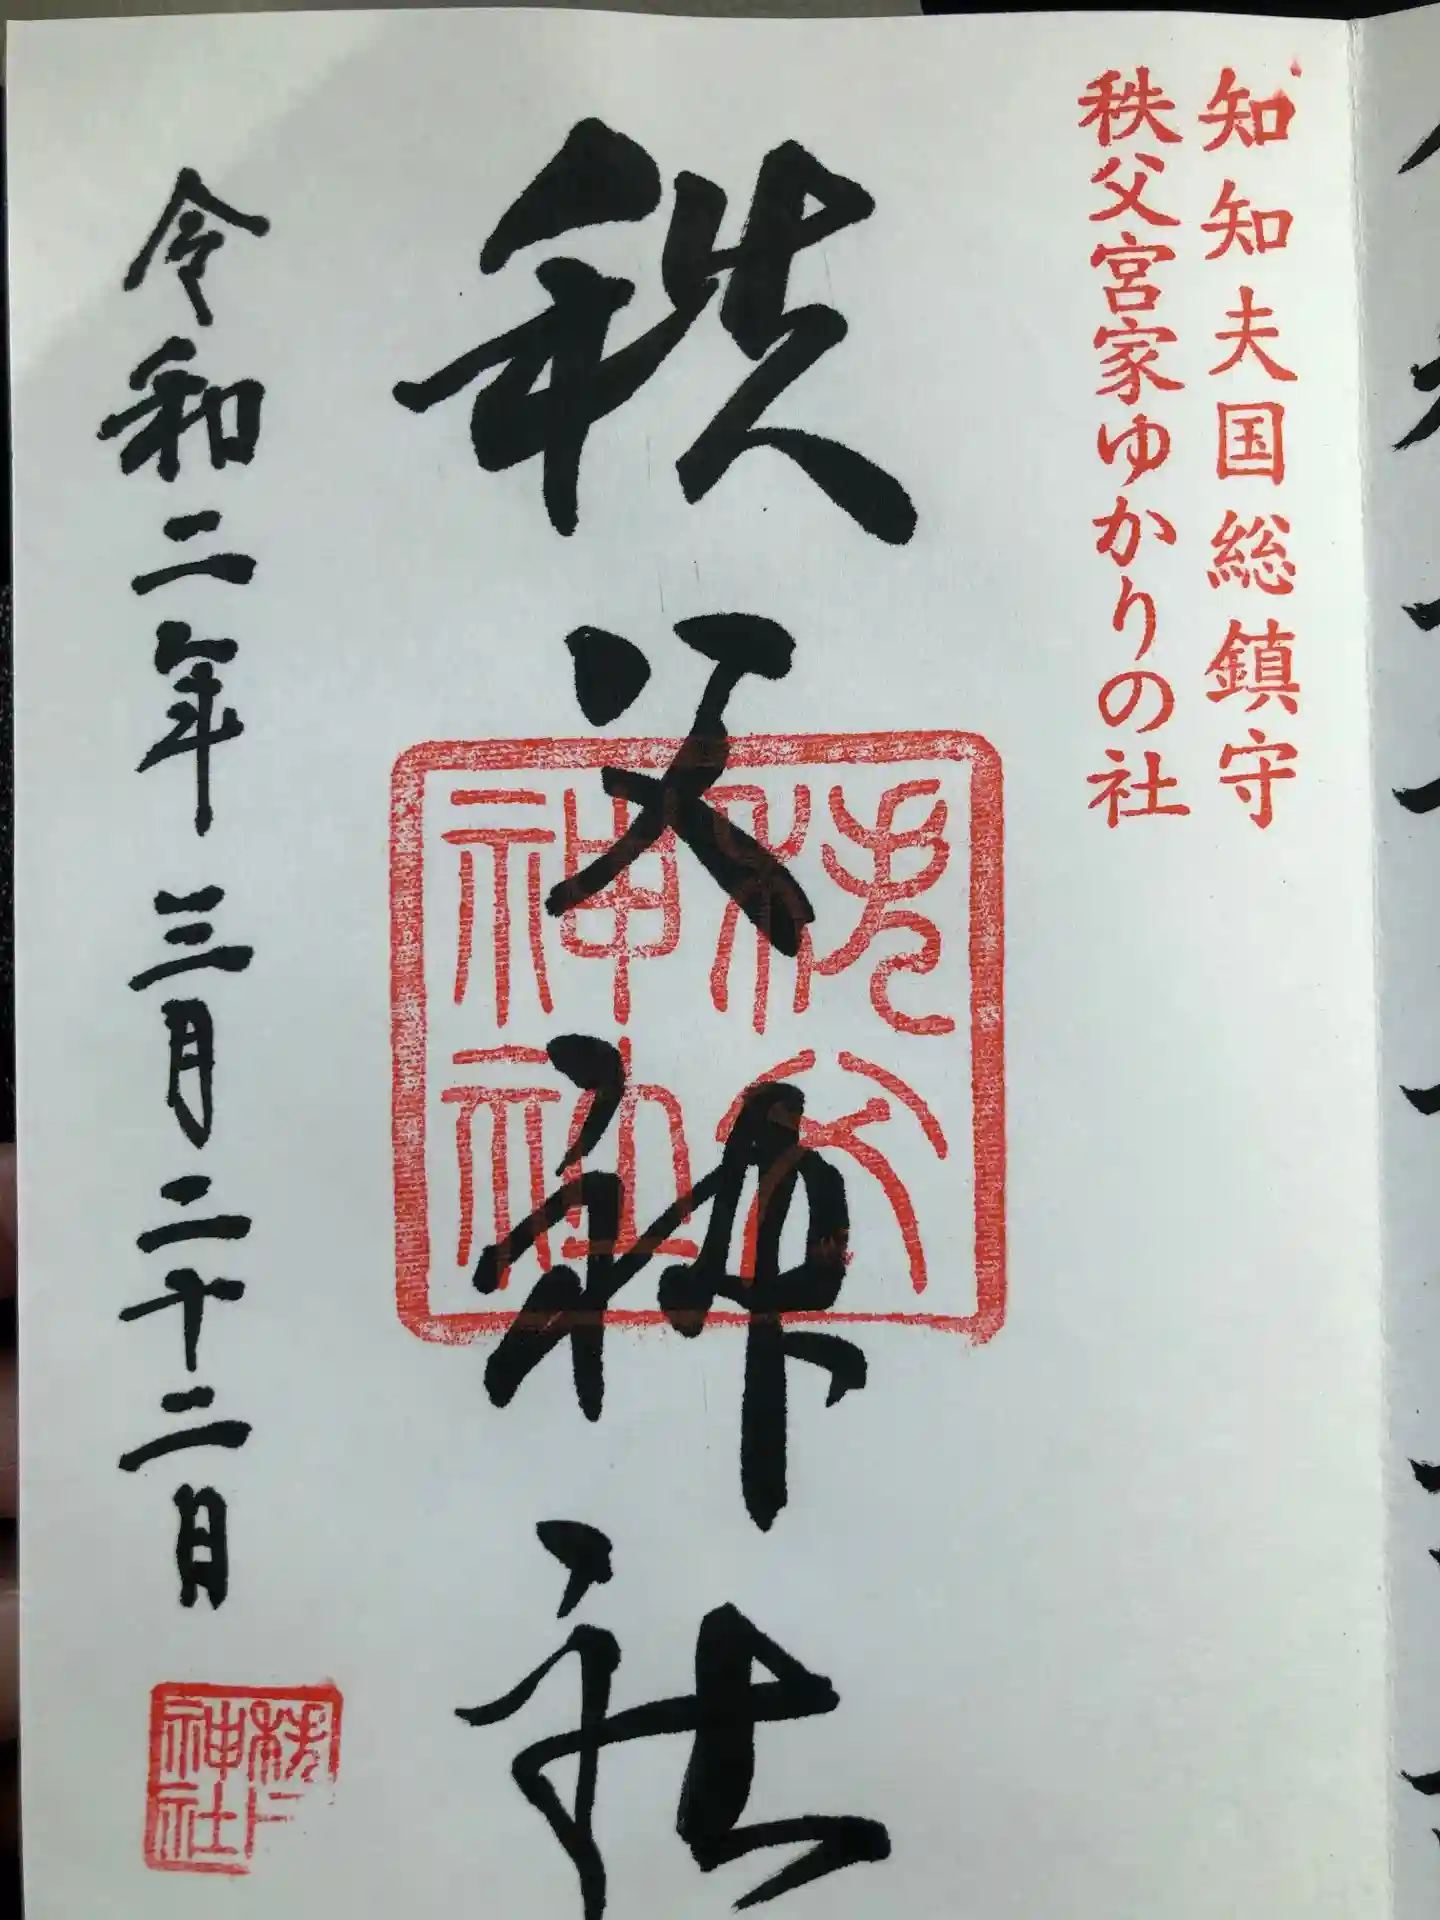 知知夫国総鎮守
秩父宮家ゆかりの社
秩父神社
秩父
神社
令和二年 三月二十二日
秩父
神社